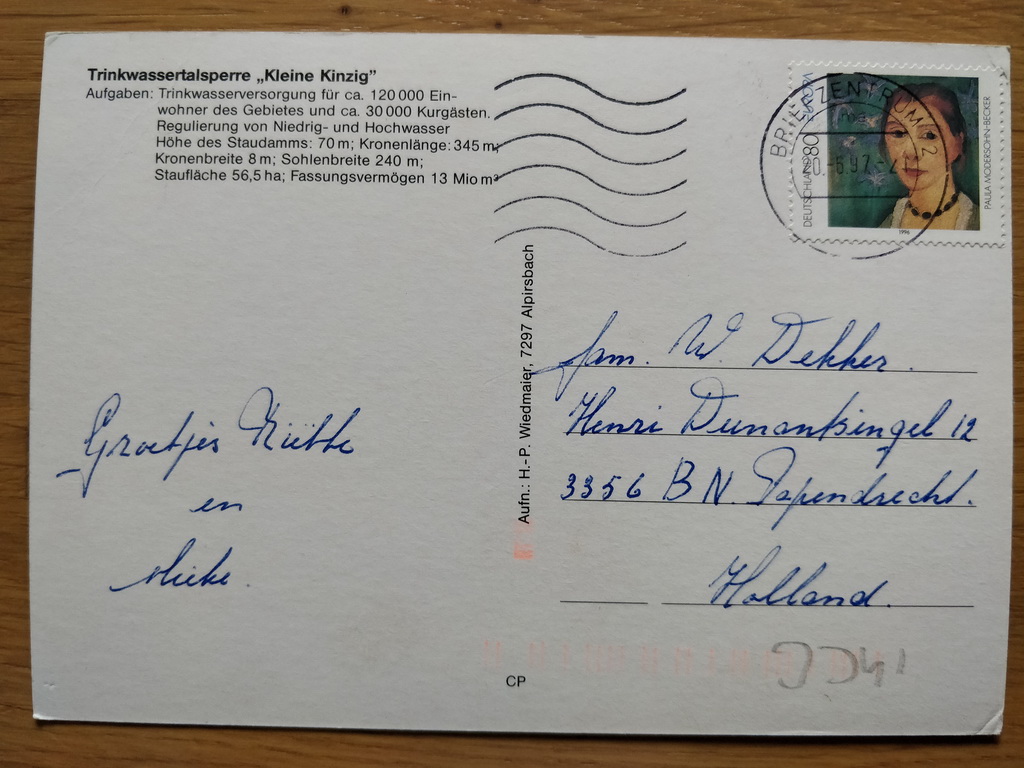 Trinkwassertalsperre „Kleine Kinzig”
Aufgaben: Trinkwasserversorgung für ca. 120 000 Ein-
wohner des Gebietes und ca. 30 000 Kurgästen.
Regulierung von Niedrig- und Hochwasser
Höhe des Staudamms: 70 m; Kronenlänge: 345 m;
Kronenbreite 8 m; Sohlenbreite 240 m;
Staufläche 56,5 ha; Fassungsvermögen 13 Mio m³
BRIEFZENTRUM 72
20.-6.97.-
EUROPA
DEUTSCHLAND 080
PAULA MODERSOHN-BECKER
1996
Aufn.: H.-P. Wiedmaier, 7297 Alpirsbach
fam. W. Dekker.
Henri Dunantsingel 12
3356 BN. Papendrecht.
Holland.
Groetjes
en
Mieke.
CP